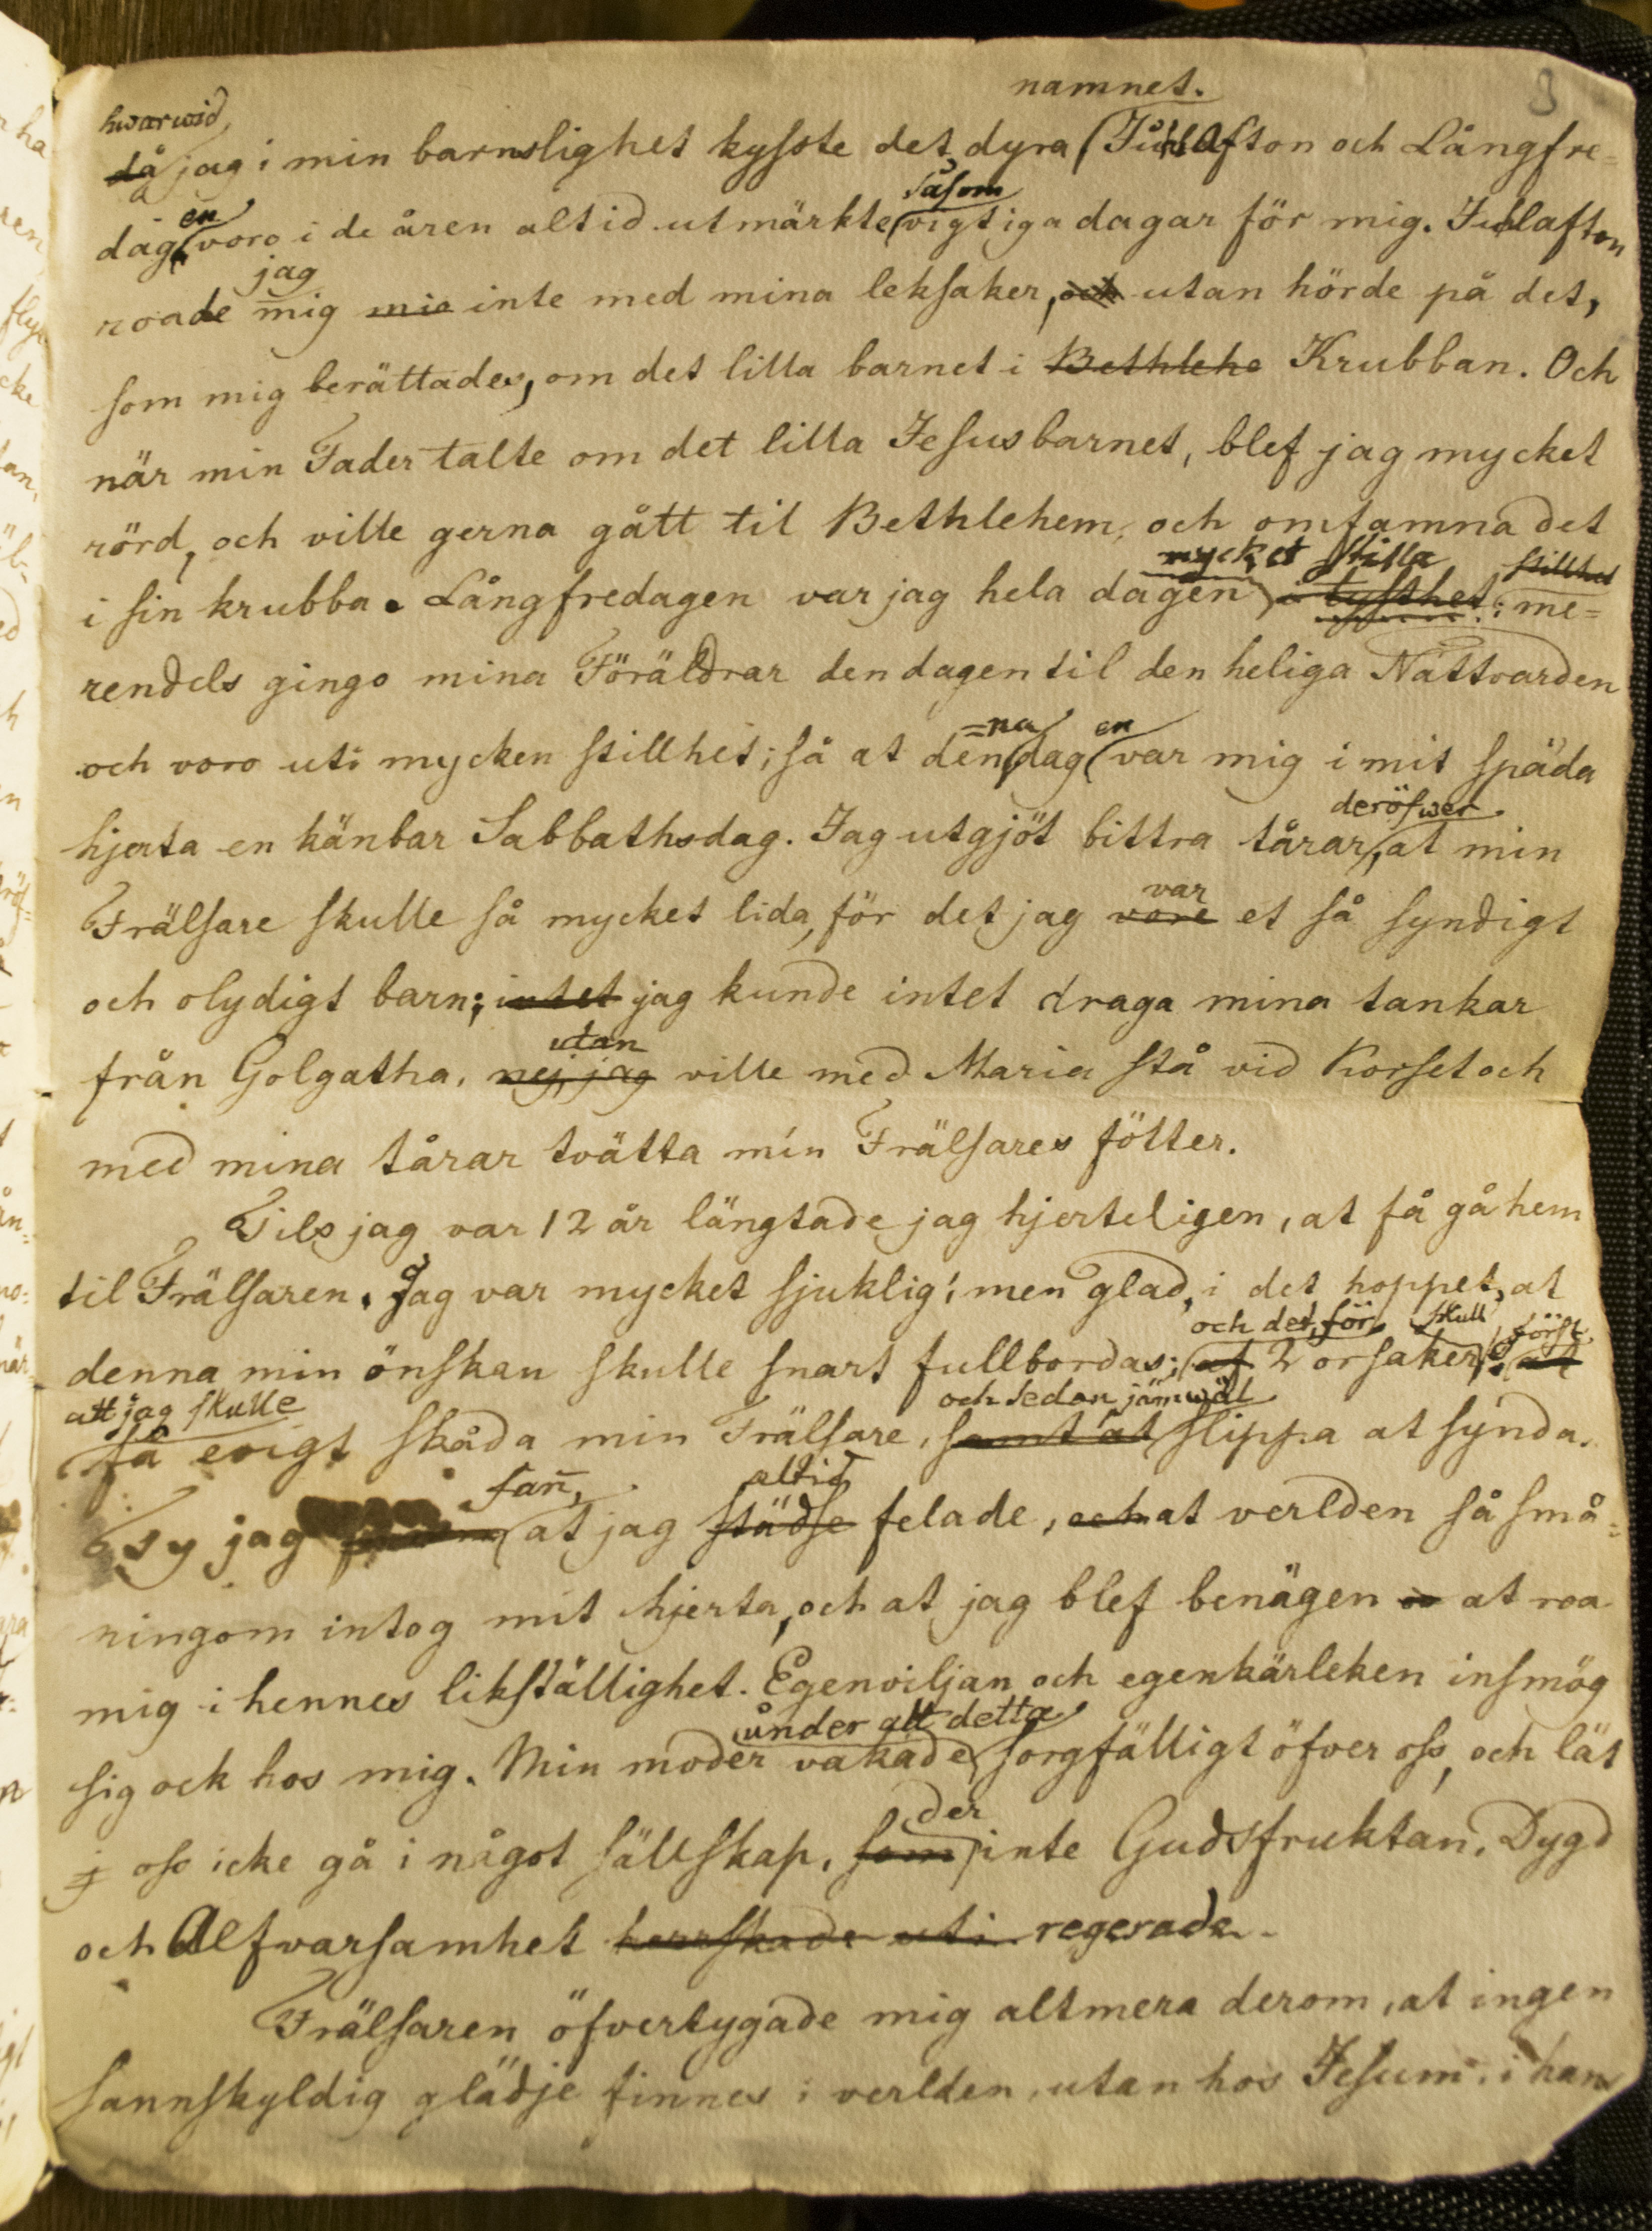 3
namnet.
hwarwid
då jag i min barnslighet kysste det dyra Julafton och Långfre=
en såsom
dag voro i de åren altid utmärkte vigtiga dagar för mig. Julafton
jag
roade mig inte med mina leksaker, och utan hörde på det,
som mig berättades, om det lilla barnet i Bethlehe Krubban. Och
när min Fader talte om det lilla Jesusbarnet, blef jag mycket
rörd, och ville gerna gått til Bethlehem, och omfamna det
mycket stilla stillhet
i sin krubba. Långfredagen var jag hela dagen i tysthet; me=
rendels gingo mina Föräldrar den dagen til den heliga Nattvarden
=na en
och voro uti mycken stillhet; så at den dag var mig i mit späda
deröfwer
hjerta en känbar Sabbathsdag. Jag utgjöt bittra tårar, at min
var
Frälsare skulle så mycket lida, för det jag vore et så syndigt
och olydigt barn; intet jag kunde intet draga mina tankar
utan
från Golgatha, nej, jag ville med Maria stå vid Korset och
med mina tårar tvätta min Frälsares fötter.
Tils jag var 12 år längtade jag hjerteligen, at få gå hem
til Frälsaren. Jag var mycket sjuklig; men glad, i det hoppet, at
och det, för skull först,
denna min önskan skulle snart fullbordas; af 2 orsaker; at
att jag skulle och sedan jämwäl
få evigt skåda min Frälsare, samt at slippa at synda.
fañ, altid
Ty jag at jag städse felade, och at verlden så små=
ningom intog mit hjerta, och at jag blef benägen at roa
mig i hennes likställighet. Egenviljan och egenkärleken insmög
under alt detta
sig ock hos mig. Min moder vakade sorgfälligt öfver oss, och lät
der
oss icke gå i något sällskap, som inte Gudsfruktan, Dygd
och Alfvarsamhet herrskade uti regerade.
Frälsaren öfvertygade mig altmera derom, at ingen
sannskyldig glädje finnes i verlden, utan hos Jesum; i han